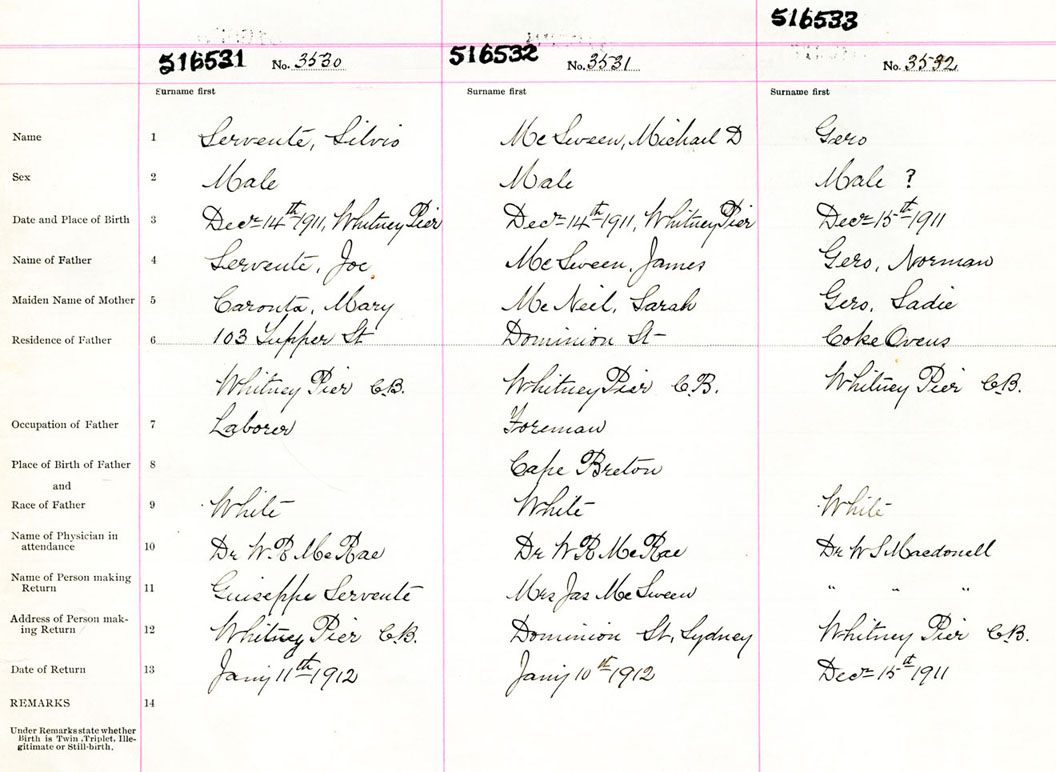 516533
516531 No. 3530 516532 No. 3531 No. 3532
Surname first Surname first Surname first
Name 1 Servente, Silvio Mc Sween, Michael D Gero
Sex 2 Male Male Male ?
Date and Place of Birth 3 Decr 14th 1911, Whitney Pier Decr 14th 1911, Whitney Pier Decr 15th 1911
Name of Father 4 Servente, Joe Mc Sween, James Gero, Norman
Maiden Name of Mother 5 Caronta, Mary Mc Neil, Sarah Gero, Sadie
Residence of Father 6 103 Tupper St Dominion St Coke Ovens
Whitney Pier C.B. Whitney Pier C.B. Whitney Pier C.B.
Occupation of Father 7 Laborer Foreman
Place of Birth of Father 8 Cape Breton
and
Race of Father 9 White White White
Name of Physician in
attendance 10 Dr W.R McRae Dr W R McRae Dr W S Macdonell
Name of Person making
Return 11 Guiseppe Servente Mrs Jas McSween " " "
Address of Person mak-
ing Return 12 Whitney Pier C.B. Dominion St, Sydney Whitney Pier C.B.
Date of Return 13 Jany 11th 1912 Jany 10th 1912 Decr 15th 1911
REMARKS 14
Under Remarks state whether
Birth is Twin, Triplet, Ille-
gitimate or Still-birth.